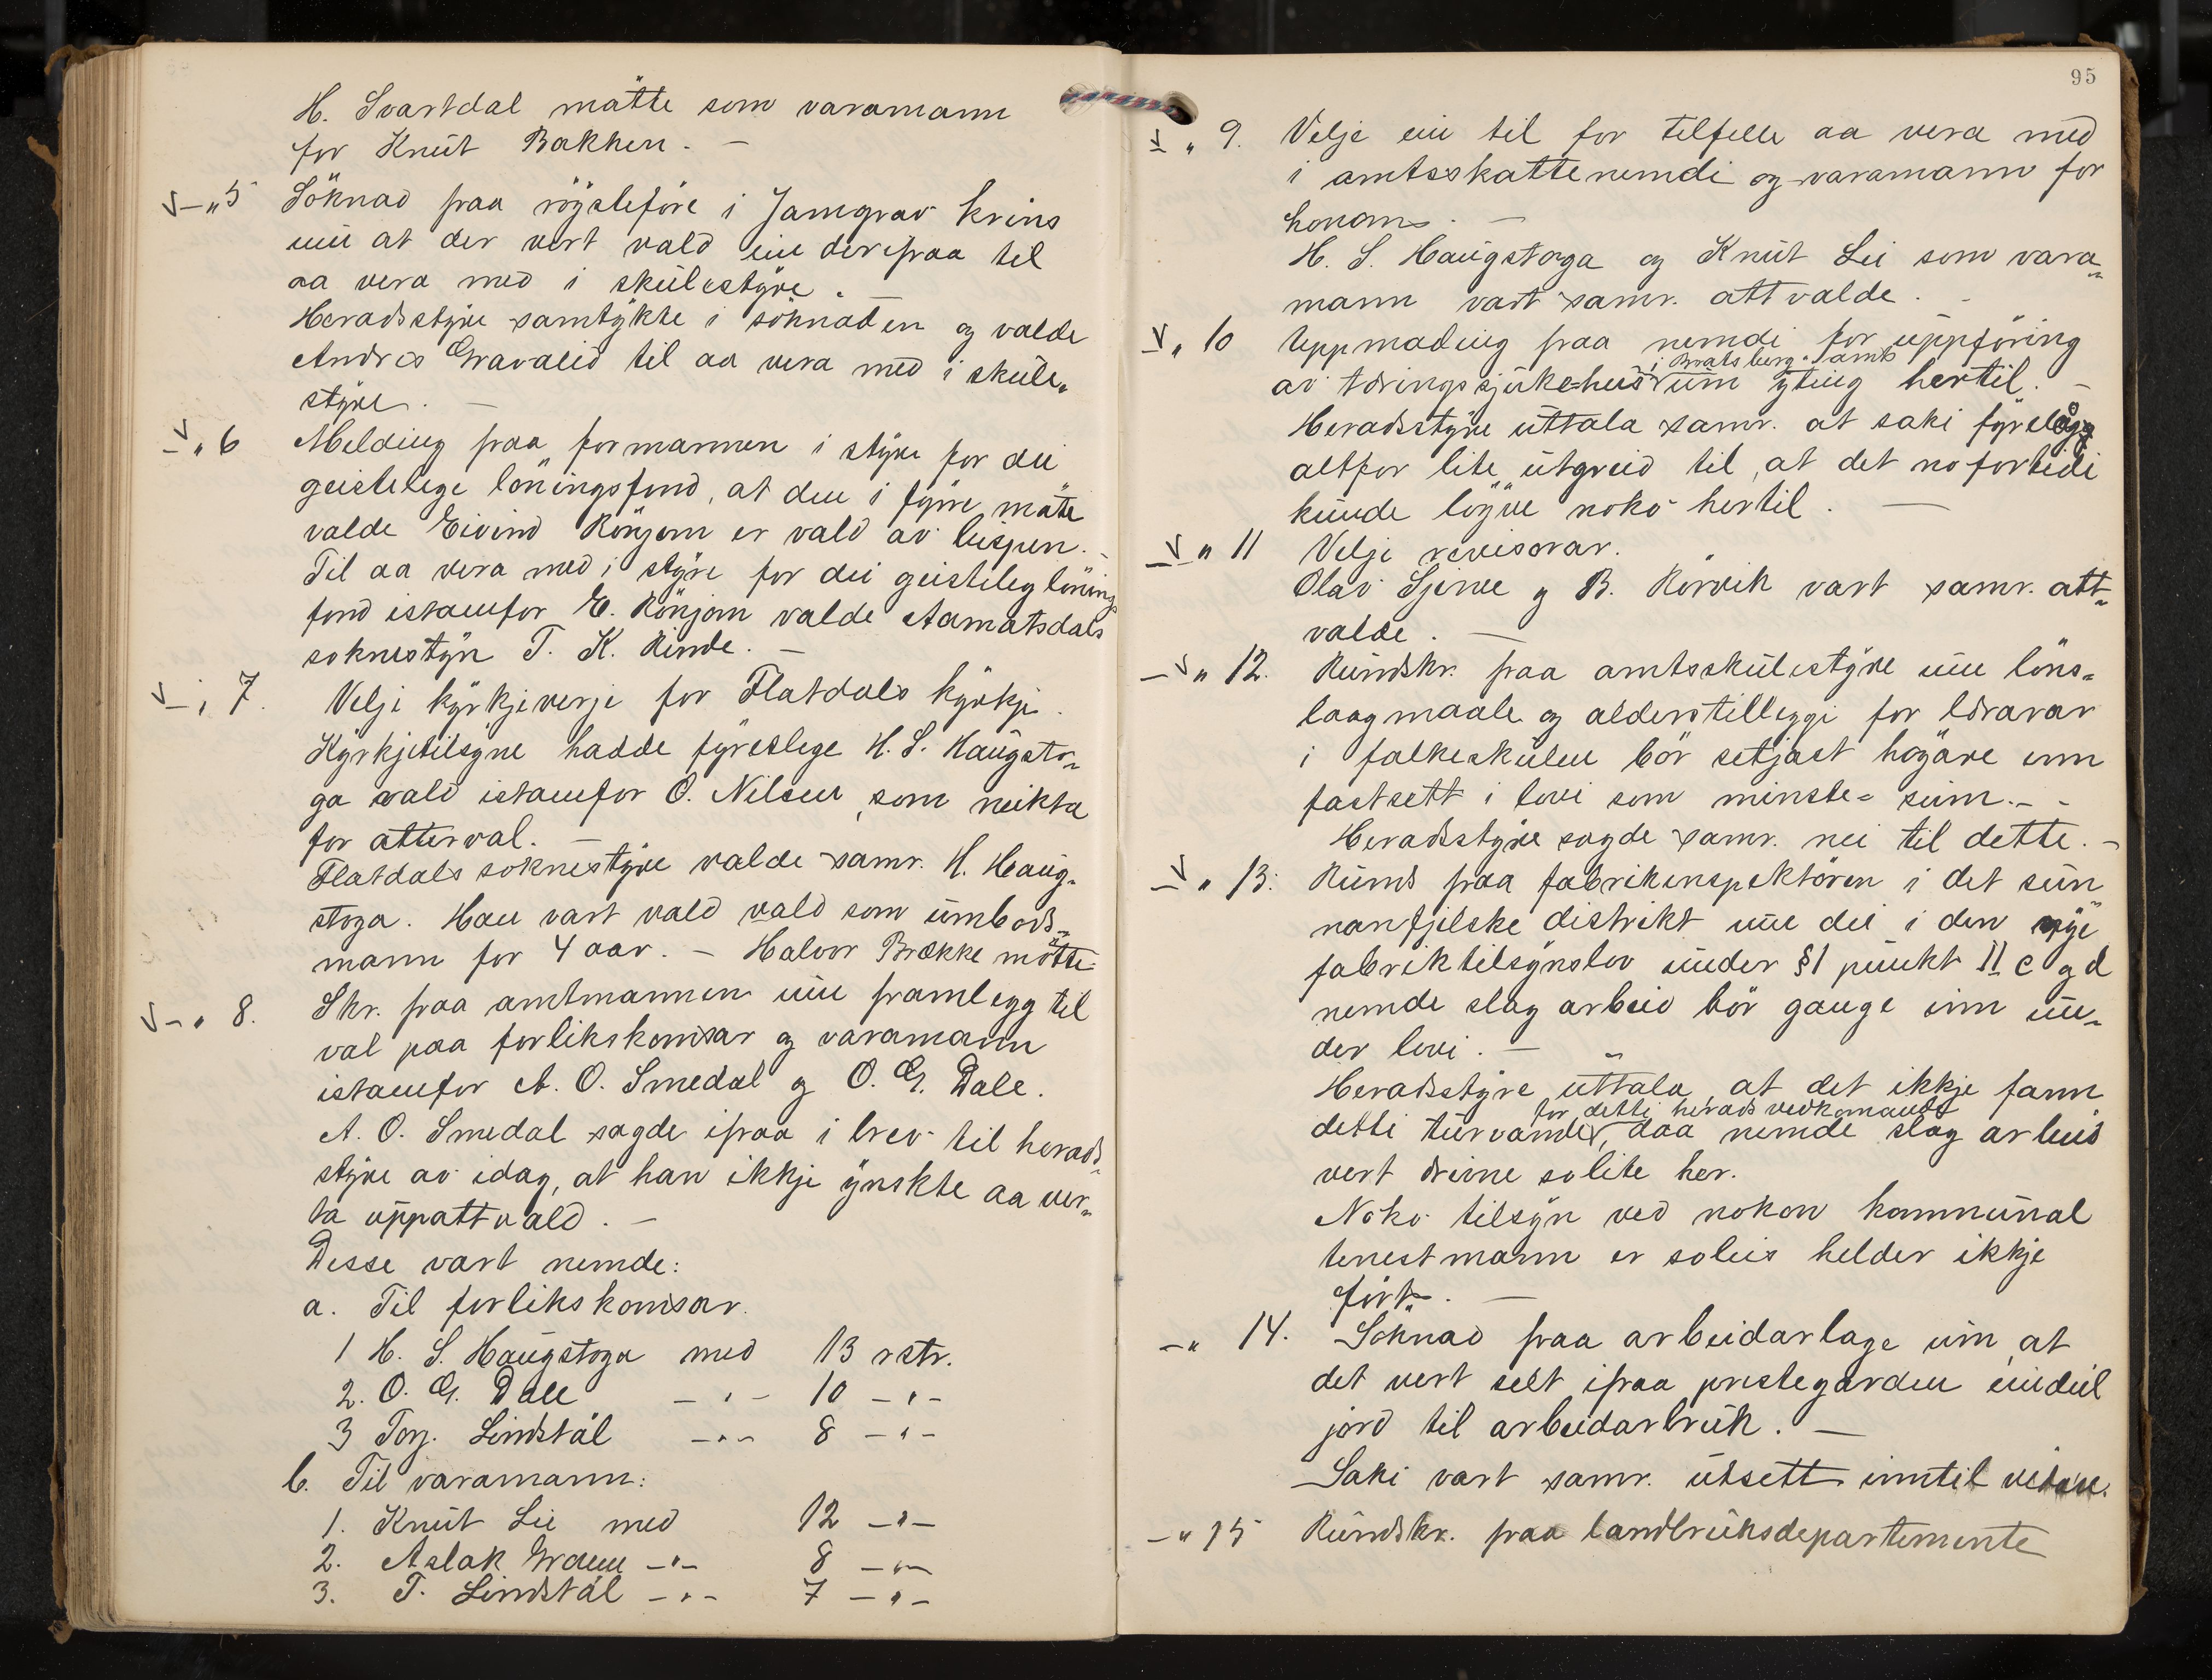 H. Svartdal mötte som varamann
for Knut Bakken. —
V — " 5 Söknad fraa röysteföre i Jamgrav krins
um at der vert vald ein derifraa til
aa vera med i skulestyre. —
Heradsstyre samtykte i söknaden og valde
Andres Gravalid til aa vera med i skule-
styre. —
V — " 6 Melding fraa formannen i styre for dei
geistelege löningsfond, at den i fyrre möte
valde Eivind Rönjom er vald av bispen. —
Til aa vera med i styre for dei geistleg lönings
fond istaenfor E. Rönjom valde Aamotsdals
soknestyre T. K. Rinde. —
V — " 7. Velje kyrkjeverje for Flatdals kyrkje.
Kyrkjetilsyne hadde fyreslege H. S. Haugsto-
ga vald istaenfor O. Nilsen, som neikta
for atterval. —
Flatdals soknestyre valde samr. H. Haug-
stoga. Han vart vald vald som umbods-
mann for 4 aar. — Halvor Brekke mötte
V — " 8. Skr. fraa amtmannen um framlegg til
val paa forlikskomisar og varamann
istaenfor A. O. Smedal og O. G. Dale.
A. O. Smedal sagde ifraa i brev til herads
styre av idag, at han ikkje ynskte aa ver-
ta uppattvald. —
Desse vart nemde:
a. Til forlikskomisar.
1 H. S. Haugstoga med 13 rstr.
2. O. G. Dale — " — 10 — " —
3 Torj. Lindstöl — " — 8 — " —
b. Til varamann:
1. Knut Lii med 12 — " —
2. Aslak Graven — " — 8 — " —
3. T. Lindstöl — " — 7 — " —
95
V " 9. Velje ein til for tilfelle aa vera med
i amtsskattenemdi og varamann for
honom. —
H. S. Haugstoga og Knut Lii som vara-
mann vart samr. attvalde. —
V " 10 Uppmoding fraa nemdi for uppföring
i Bratsberg amt
av tæringssjuke-hus um yting hertil. —
Heradsstyre uttala samr. at saki fyrelåg
altfor lite utgreid til, at det no forbidi
kunde löyve noko hertil. —
V — " 11 Velje revisorar.
Olav Sjerve og B. Rörvik vart samr. att-
valde. —
— V " 12. Rundskr. fraa amtsskulestyre um löns-
laagmaale og alderstilleggi for lærarar
i folkeskulen bör setjast högare enn
fastsett i lovi som minste-sum. —
Heradsstyre sagde samr. nei til dette. —
— V " 13. Runds fraa fabrikinspektören i det sun
nanfjelske distrikt um dei i den nye
fabriktilsynslov under § 1 punkt II c og d
nemde slag arbeid bör gange inn un-
der lovi. —
Heradsstyre uttala, at det ikkje fann
for dette herads vedkomande
dette turvande, daa nemde slag arbeid
vert drivne solite her.
Noko tilsyn ved nokon kommunal
tenestmann er soleis helder ikkje
fört. —
— " 14. Söknad fraa arbeidarlage um, at
det vert selt ifraa prestegarden eindeil
jord til arbeidarbruk. —
Saki vart samr. utsett inntil vidare.
— " 15 Rundskr. fraa landbruksdepartemente